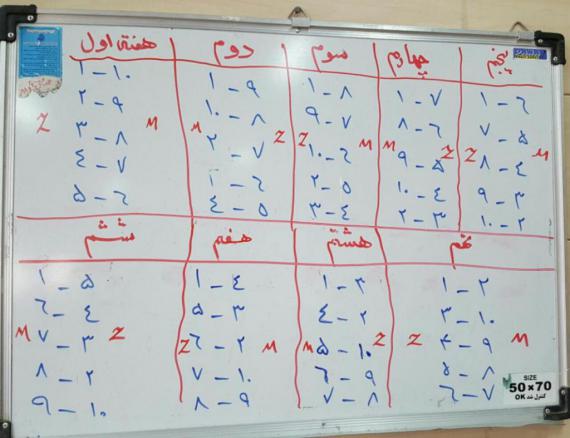 هفته اول
۱ - ۱۰
۲ - ۹
Z ۳ - ۸ M
۴ - ۷
۵ - ۶
دوم
۱ - ۹
۱۰ - ۸
M ۲ - ۷ Z
۱ - ۶
۴ - ۵
سوم
۱ - ۸
۹ - ۷
Z ۱۰ - ۶ M
۲ - ۵
۳ - ۴
چهارم
۱ - ۷
۸ - ۶
M ۹ - ۵ Z
۱۰ - ۴
۲ - ۳
پنجم
۱ - ۶
۷ - ۵
Z ۸ - ۴ M
۹ - ۳
۱۰ - ۲
ششم
۱ - ۵
۶ - ۴
M ۷ - ۳ Z
۸ - ۲
۹ - ۱۰
هفتم
۱ - ۴
۵ - ۳
Z ۶ - ۲ M
۷ - ۱۰
۸ - ۹
هشتم
۱ - ۳
۴ - ۲
M ۵ - ۱۰ Z
۶ - ۹
۷ - ۸
نهم
۱ - ۲
۳ - ۱۰
Z ۴ - ۹ M
۵ - ۸
۶ - ۷
SIZE
50×70
کنترل شد OK